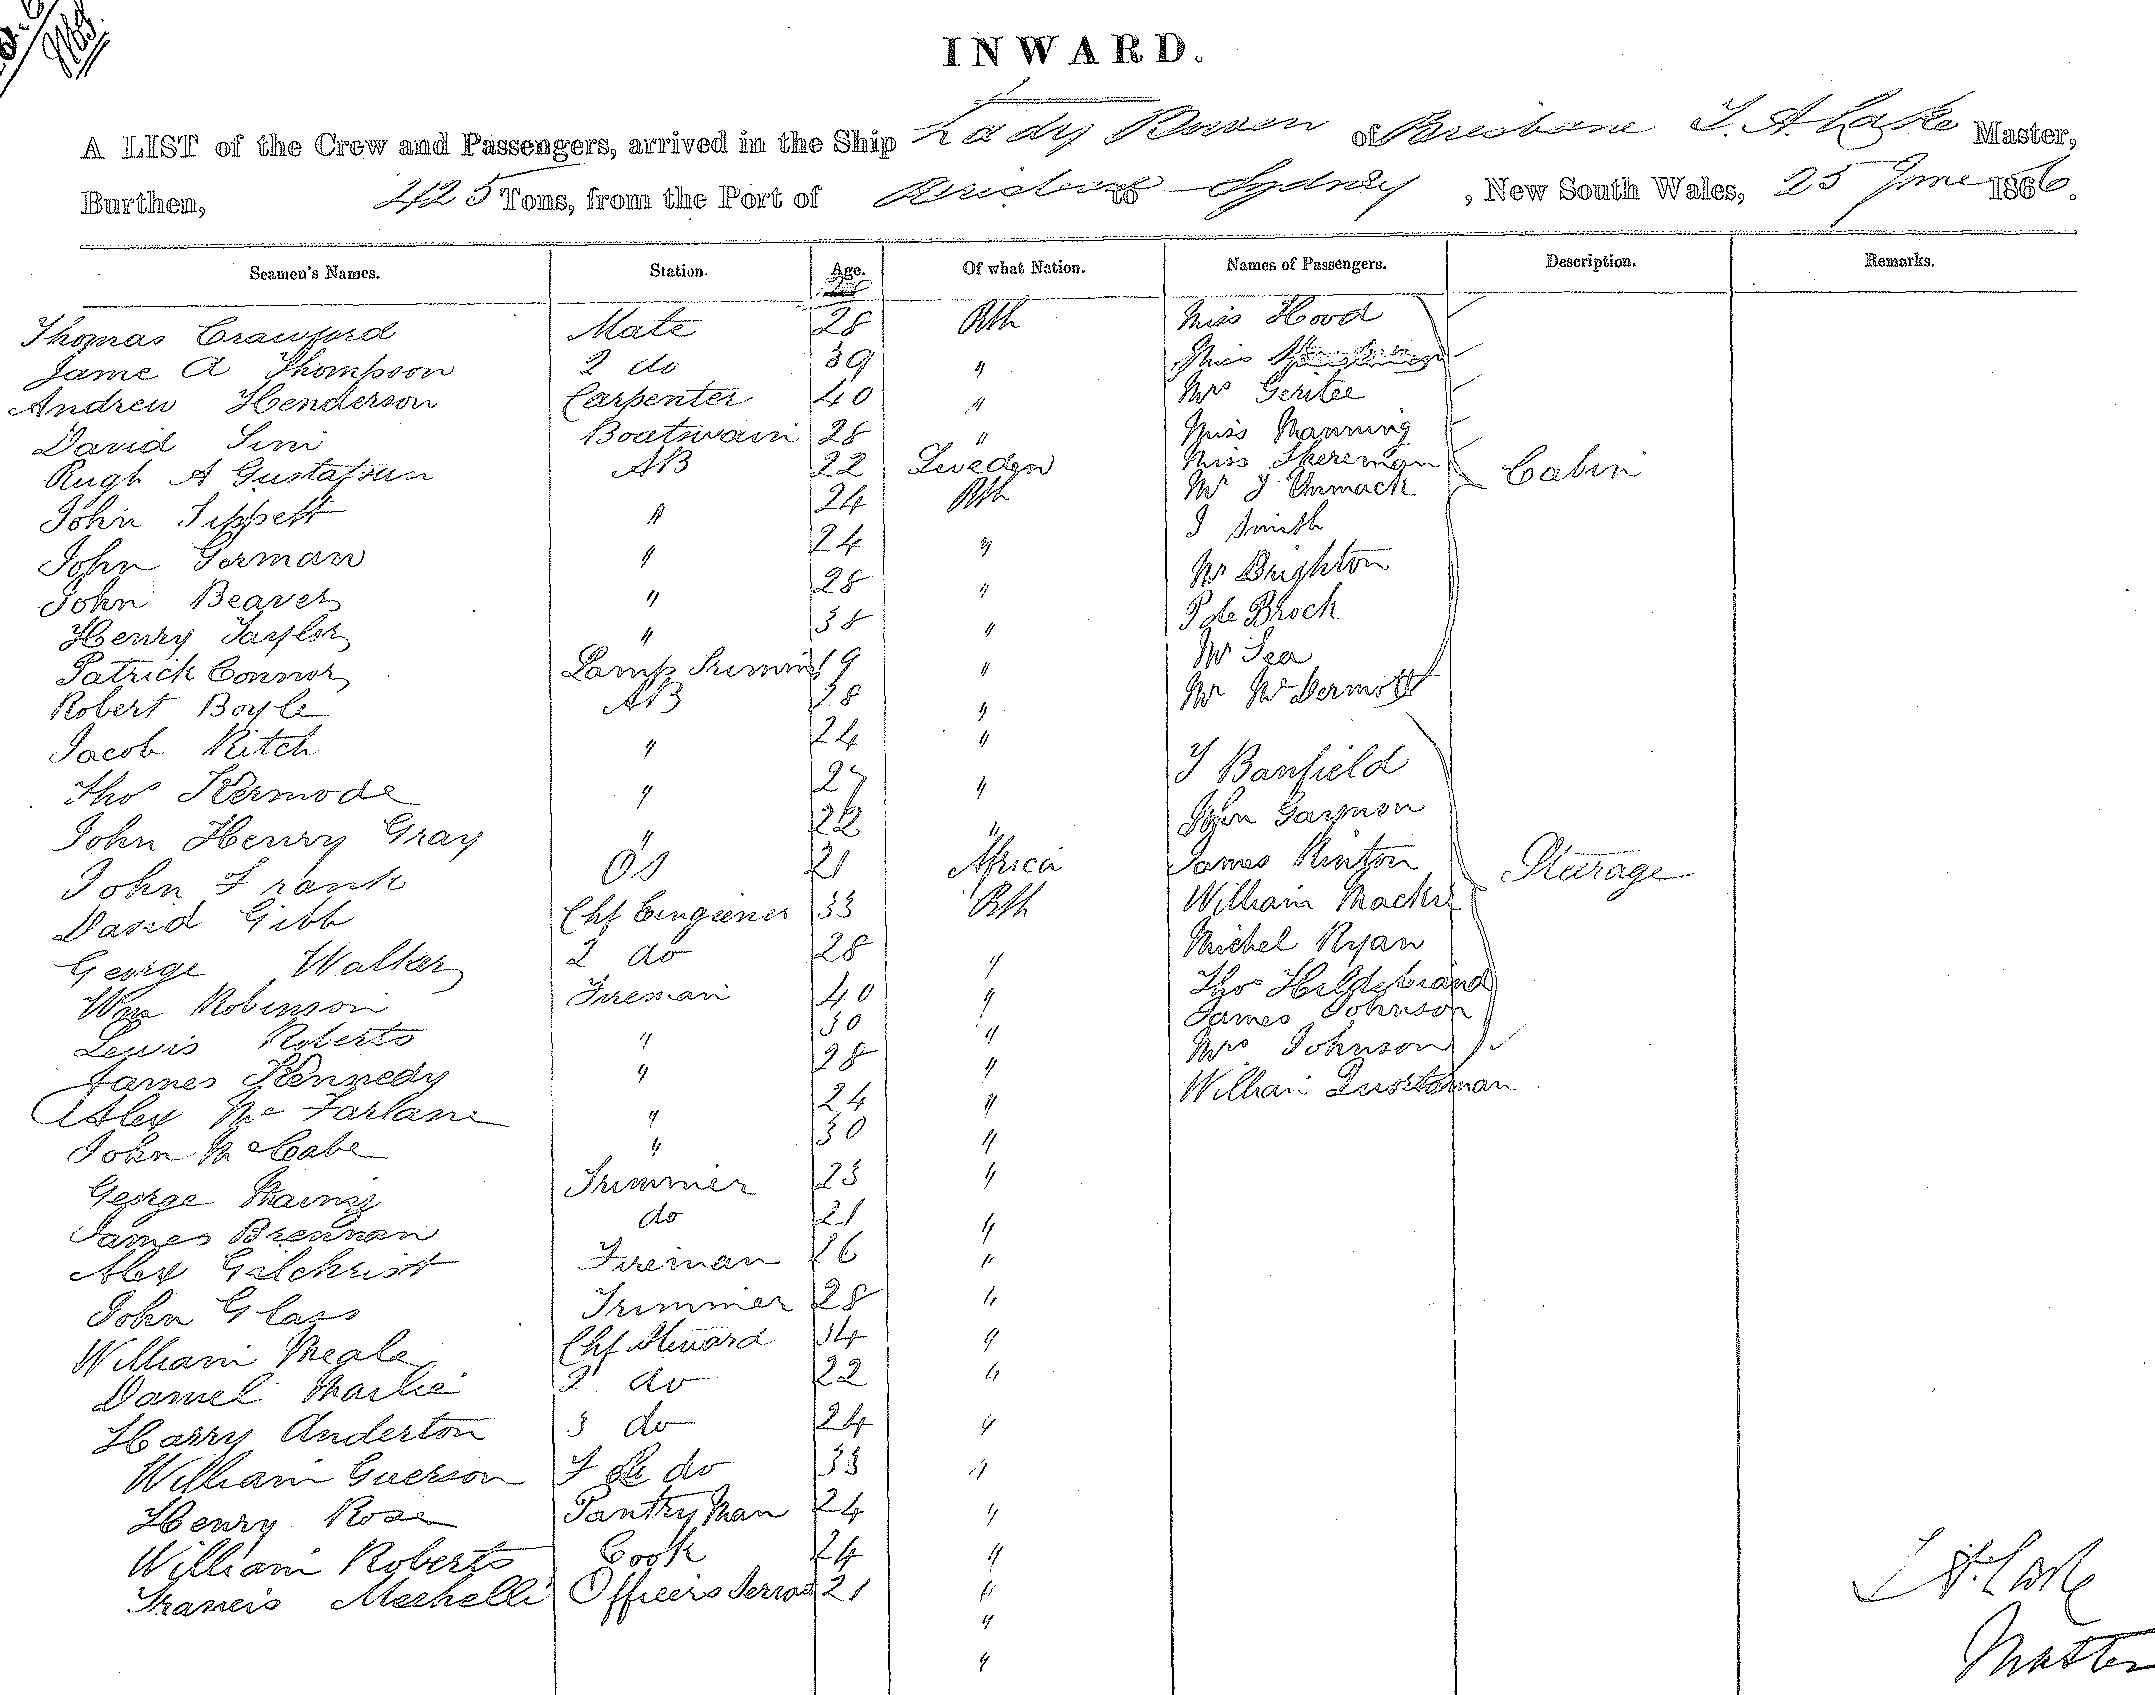 INWARD.
A LIST of the Crew and Passengers, arrived in the Ship Lady Bowen of Brisbane T. A. Lake Master,
Burthen, 425 Tons, from the Port of Brisbane to Sydney, New South Wales, 25 June 1866.
Seamen's Names. Station. Age. Of what Nation. Names of Passengers. Description. Remarks.
Thomas Crawford Mate 28 Bth Miss Hood
Jame A Thompson 2 do 39 " Miss
Andrew Henderson Carpenter 40 " Mrs Geritee
David Sim Boatswain 28 " Miss Manning
Hugh A Gustafsun AB 22 Sweden Miss Skereman Cabin
John Tippett " 24 Bth Mr J Unmack
John Gorman " 24 " J Smith
John Beaver " 28 " Mr Brighton
Henry Taylor " 38 " P de Broch
Patrick Connor Lamp Trimmer 19 " Mr Sea
Robert Boyle AB 28 " Mr McDermott
Jacob Ritch " 24 "
Thos Kermode " 27 " J Banfield
John Henry Gray " 22 " John Garmon
John Frank OS 21 Africa James Rinton Sturage
David Gibb Chf Engineer 33 Bth William Mackie
George Walker 2 do 28 " Michel Ryan
Wm Robinson Fireman 40 " Thos Hildebrand
Lewis Roberts " 30 " James Johnson
James Kennedy " 28 " Mrs Johnson
Alex McFarlane " 24 " William
John McCabe " 30 "
George Trimmer 23 "
James Brennan do 21 "
Alex Gilchrist Fireman 26 "
John Glass Trimmer 28 "
William Meale Chf Steward 34 "
Daniel 2 do 22 "
Harry Anderton 3 do 24 "
William Guerson F St do 33 "
Henry Rose Pantry Man 24 "
William Roberts Cook 24 "
Francis Mechelli Officers Servant 21 "
"
"
T A Lake
Master